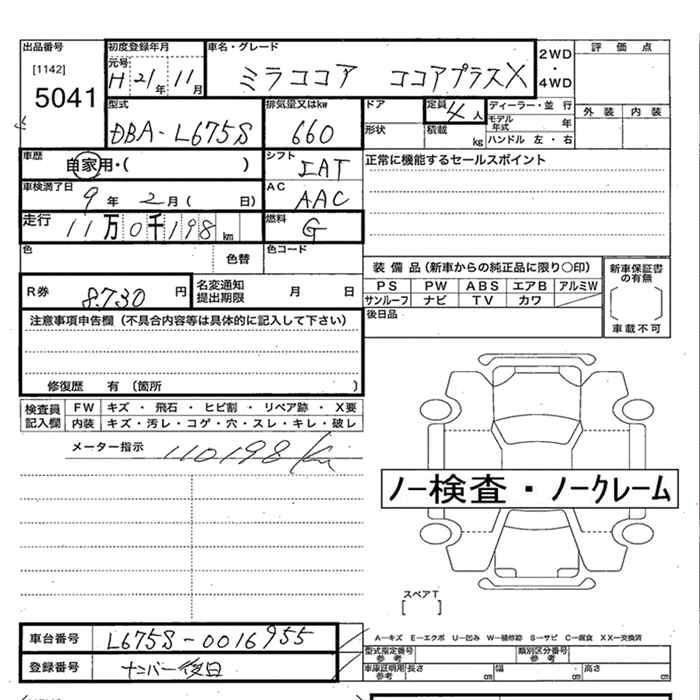 出品番号
[1142]
5041
初度登録年月
元号
H 21年 11月
車名・グレード
ミラココア ココアプラスX
2WD
・
4WD
評価点
外装 内装
型式
DBA-L675S
排気量又はkw
660
ドア
形状
定員 4人
積載 kg
ディーラー・並行
モデル年式 年
ハンドル 左・右
車歴
自家用・( )
シフト
IAT
正常に機能するセールスポイント
車検満了日
9年 2月 ( 日)
AC
AAC
走行
11万0千198km
燃料
G
色
色替
色コード
装備品(新車からの純正品に限り○印)
PS PW ABS エアB アルミW
サンルーフ ナビ TV カワ
新車保証書の有無
[ ]
車載不可
R券 8,730円
名変通知
提出期限
月 日
後日品
注意事項申告欄(不具合内容等は具体的に記入して下さい)
修復歴 有 〔箇所 〕
検査員
記入欄
FW キズ・飛石・ヒビ割・リペア跡・X要
内装 キズ・汚レ・コゲ・穴・スレ・キレ・破レ
メーター指示 110198km
ノー検査・ノークレーム
スペアT
[ ]
A−キズ E−エクボ U−凹み W−補修跡 S−サビ C−腐食 XX−交換済
車台番号 L675S-0016955
登録番号 ナンバー後日
型式指定番号
参考
類別区分番号
参考
車庫証明用
参考
長さ cm 幅 cm 高さ cm